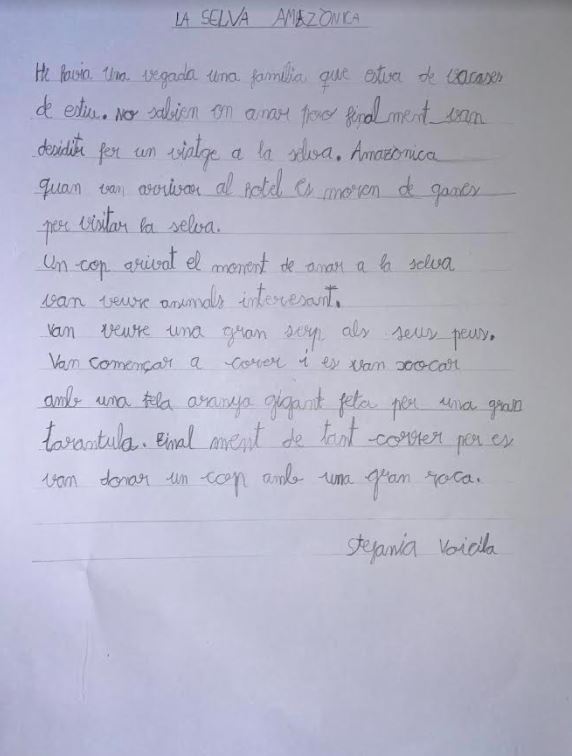 LA SELVA AMAZÒNICA
Hi havia una vegada una familia que estva de vacases
de estiu. No sabien on anar pero final ment van
desidir fer un viatge a la selva. Amazonica
quan van arrivar al hotel es moren de ganes
per visitar la selva.
Un cop arivat el moment de anar a la selva
van veure animals interesant.
Van veure una gran serp als seus peus.
Van començar a correr i es van xocar
amb una tela aranya gigant feta per una gran
tarantula. Final ment de tant correr per es
van donar un cop amb una gran roca.
Stefania Voicila